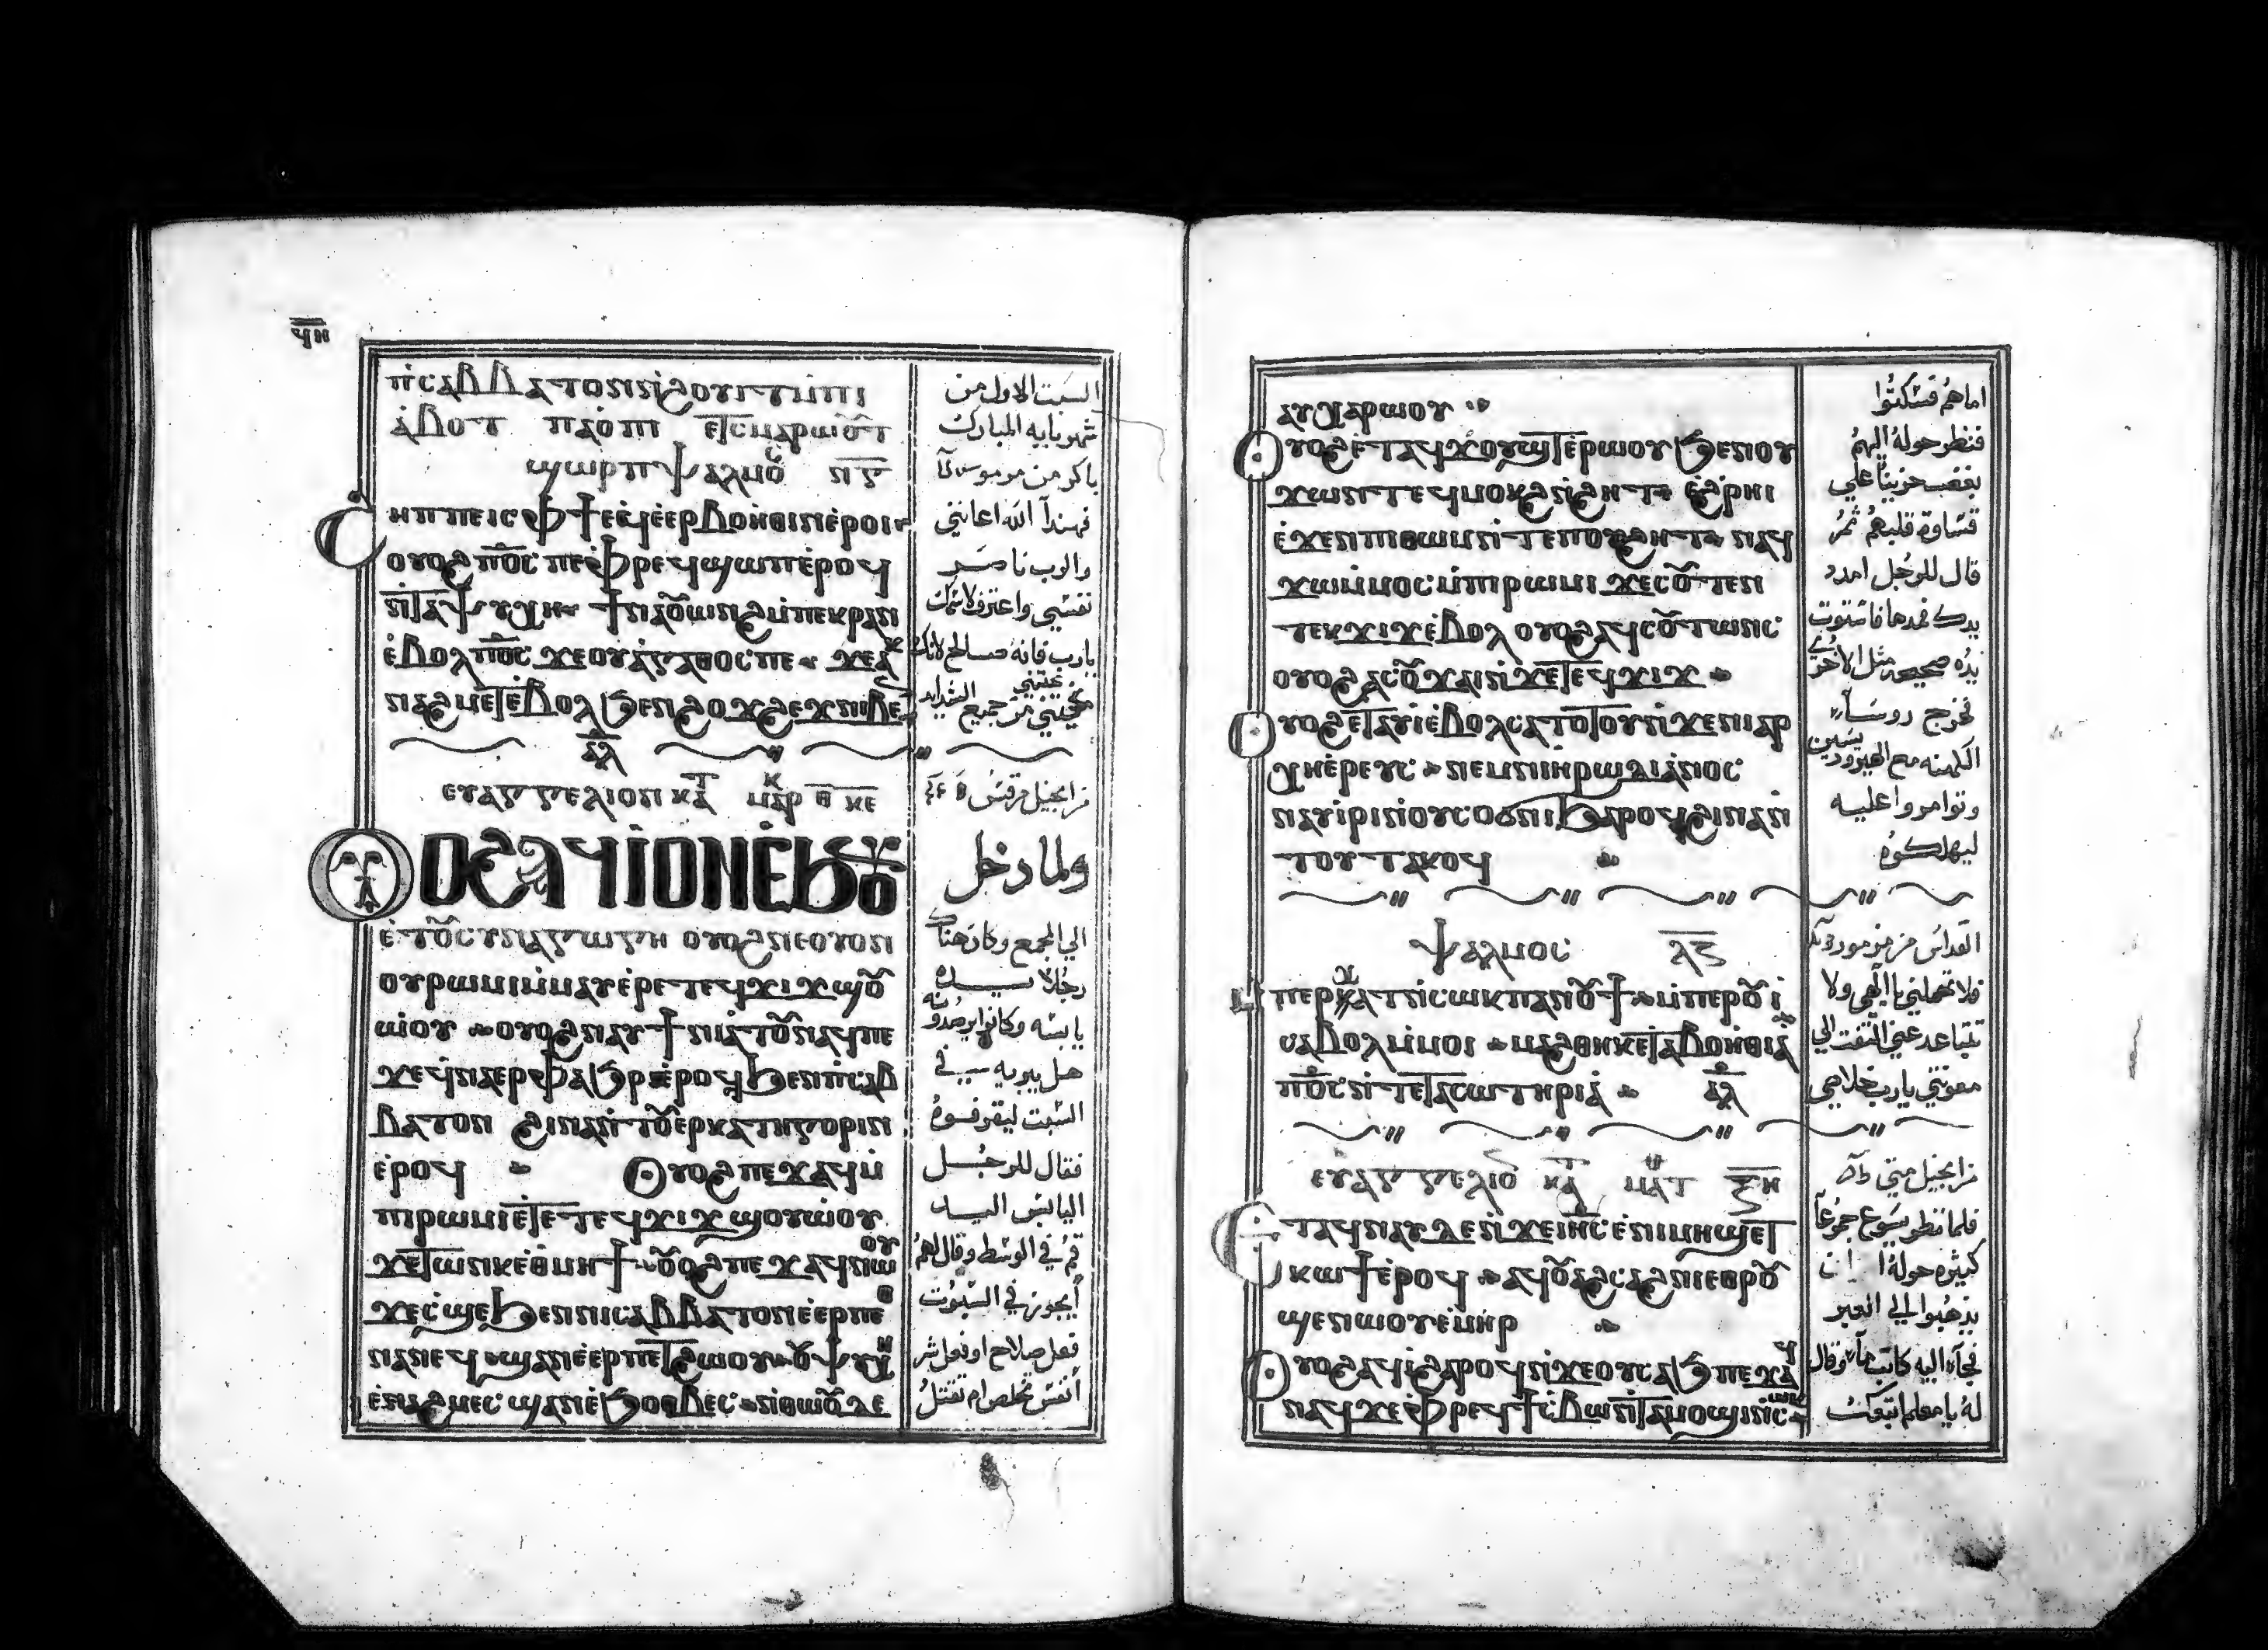 ϥⲏ
ⲡⲥⲁⲃⲃⲁⲧⲟⲛ ⲛϩⲟⲩⲓⲧ ⲙⲡⲓ
ⲁⲃⲟⲧ ⲡⲁⲟⲡⲓ ⲉⲧⲥⲙⲁⲣⲱⲟⲩⲧ
ϣⲱⲣⲡ ⲯⲁⲗⲙⲟ ⲛⲅ
ϩⲏⲡⲡⲉ ⲓⲥ ⲫϯ ⲉϥⲉⲉⲣⲃⲟⲏⲑⲓⲛ ⲉⲣⲟⲓ
ⲟⲩⲟϩ ⲡⲟⲥ ⲡⲉ ⲫⲣⲉϥϣⲱⲡ ⲉⲣⲟϥ
ⲛⲧⲁⲯⲩⲭⲏ ϯⲛⲁⲟⲩⲱⲛϩ ⲙⲡⲉⲕⲣⲁⲛ
ⲉⲃⲟⲗ ⲡⲟⲥ ϫⲉ ⲟⲩⲁⲅⲁⲑⲟⲥ ⲡⲉ ϫⲉ ⲁⲕ
ⲛⲁϩⲙⲉⲧ ⲉⲃⲟⲗ ϧⲉⲛ ϩⲟϫϩⲉϫ ⲛⲓⲃⲉⲛ
ⲁⲗ
ⲉⲩⲁⲅⲅⲉⲗⲓⲟⲛ ⲕⲁⲧ ⲙⲁⲣⲕ ⲑ ⲕⲉ
ⲟⲩⲟϩ ⲁϥⲓ ⲟⲛ ⲉϧⲟⲩⲛ
ⲉⲧⲟⲩⲥⲩⲛⲁⲅⲱⲅⲏ ⲟⲩⲟϩ ⲛⲉ ⲟⲩⲟⲛ
ⲟⲩⲣⲱⲙⲓ ⲙⲙⲁⲩ ⲉⲣⲉ ⲧⲉϥϫⲓϫ ϣⲟⲩ
ⲱⲟⲩ ⲟⲩⲟϩ ⲛⲁⲩϯⲛⲓⲁⲧⲟⲩ ⲛⲁϥ ⲡⲉ
ϫⲉ ϥⲛⲁⲉⲣⲫⲁϧⲣⲓ ⲉⲣⲟϥ ϧⲉⲛ ⲡⲥⲁⲃ
ⲃⲁⲧⲟⲛ ϩⲓⲛⲁ ⲛⲧⲟⲩⲉⲣⲕⲁⲧⲏⲅⲟⲣⲓⲛ
ⲉⲣⲟϥ ⲟⲩⲟϩ ⲡⲉϫⲁϥ ⲙ
ⲡⲓⲣⲱⲙⲓ ⲉⲧⲉ ⲧⲉϥϫⲓϫ ϣⲟⲩⲱⲟⲩ
ϫⲉ ⲧⲱⲛⲕ ⲉⲑⲙⲏϯ ⲟⲩⲟϩ ⲡⲉϫⲁϥ ⲛⲱⲟⲩ
ϫⲉ ⲥϣⲉ ϧⲉⲛ ⲛⲓⲥⲁⲃⲃⲁⲧⲟⲛ ⲉⲉⲣ ⲡⲉⲑ
ⲛⲁⲛⲉϥ ϣⲁⲛ ⲉⲉⲣ ⲡⲉⲧϩⲱⲟⲩ ⲟⲩⲯⲩⲭⲏ
ⲉⲛⲁϩⲙⲉⲥ ϣⲁⲛ ⲉϧⲟⲑⲃⲉⲥ ⲛⲑⲱⲟⲩ ⲇⲉ
السبت الاول من
شهر بابه المبارك
باكر من مزمور
فهوذا الله اعانني
والرب ناصر
نفسي واعترف لاسمك
يا رب فانه صالح لانك
نجيتني من جميع الشدايد
من انجيل مرقس
ولما دخل
الي المجمع وكان هناك
رجلا يده
يابسه وكانوا يرصدونه
هل يبريه في
السبت ليقرفوه
فقال للرجل
اليابس اليد
قم في الوسط وقال لهم
أيجوز في السبوت
فعل صلاح او فعل شر
أنفس تخلص ام تقتل
ⲁⲩⲭⲁⲣⲱⲟⲩ
ⲟⲩⲟϩ ⲉⲧⲁϥϫⲟⲩϣⲧ ⲉⲣⲱⲟⲩ ϧⲉⲛ ⲟⲩ
ϫⲱⲛⲧ ⲉϥⲙⲟⲕϩ ⲛϩⲏⲧ ⲉϩⲣⲏⲓ
ⲉϫⲉⲛ ⲡⲓⲑⲱⲙ ⲛⲧⲉ ⲡⲟⲩϩⲏⲧ ⲛⲁϥ
ϫⲱ ⲙⲙⲟⲥ ⲙⲡⲓⲣⲱⲙⲓ ϫⲉ ⲥⲟⲩⲧⲉⲛ
ⲧⲉⲕϫⲓϫ ⲉⲃⲟⲗ ⲟⲩⲟϩ ⲁϥⲥⲟⲩⲧⲱⲛⲥ
ⲟⲩⲟϩ ⲁⲥⲟⲩϫⲁⲓ ⲛϫⲉ ⲧⲉϥϫⲓϫ
ⲟⲩⲟϩ ⲉⲧⲁⲩⲓ ⲉⲃⲟⲗ ⲥⲁⲧⲟⲧⲟⲩ ⲛϫⲉ ⲛⲓⲁⲣ
ⲭⲏⲉⲣⲉⲩⲥ ⲛⲉⲙ ⲛⲓⲏⲣⲱⲇⲓⲁⲛⲟⲥ
ⲛⲁⲩⲓⲣⲓ ⲛⲟⲩⲥⲟϭⲛⲓ ϧⲁⲣⲟϥ ϩⲓⲛⲁ ⲛ
ⲧⲟⲩⲧⲁⲕⲟϥ
ⲯⲁⲗⲙⲟⲥ ⲗⲍ
ⲙⲡⲉⲣⲭⲁⲧ ⲛⲥⲱⲕ ⲡⲁⲛⲟⲩϯ ⲙⲡⲉⲣⲟⲩⲓ
ⲥⲁⲃⲟⲗ ⲙⲙⲟⲓ ⲙⲁϩⲑⲏⲕ ⲉⲧⲁⲃⲟⲏⲑⲓⲁ
ⲡⲟⲥ ⲛⲧⲉ ⲧⲁⲥⲱⲧⲏⲣⲓⲁ ⲁⲗ
ⲉⲩⲁⲅⲅⲉⲗⲓⲟ ⲕⲁⲧ ⲙⲁⲧ ⲝⲏ
ⲉⲧⲁϥⲛⲁⲩ ⲇⲉ ⲛϫⲉ ⲓⲏⲥ ⲉⲛⲓⲙⲏϣ ⲉⲧ
ⲕⲱϯ ⲉⲣⲟϥ ⲁϥⲟⲩⲁϩⲥⲁϩⲛⲓ ⲉⲑⲣⲟⲩ
ϣⲉⲛⲱⲟⲩ ⲉⲙⲏⲣ
ⲟⲩⲟϩ ⲁϥⲓ ϩⲁⲣⲟϥ ⲛϫⲉ ⲟⲩⲥⲁϧ ⲡⲉϫⲁϥ
ⲛⲁϥ ϫⲉ ⲫⲣⲉϥϯⲥⲃⲱ ⲛⲧⲁⲙⲟϣⲓ ⲛⲥⲱⲕ
اما هم فسكتوا
فنظر حوله اليهم
بغضب حزينا علي
قساوة قلبهم ثم
قال للرجل امدد
يدك فمدها فاستوت
يده صحيحه مثل الاخري
فخرج روساء
الكهنه مع الهيرودسيين
وتوامروا عليه
ليهلكوه
القداس من مزمور
فلا تهملني يا الهي ولا
تتباعد عني التفت الي
معونتي يا رب خلاصي
من انجيل متي
فلما نظر يسوع جموعا
كثيره حوله
يذهبوا الي العبر
فجاء اليه كاتب وقال
له يا معلم اتبعك